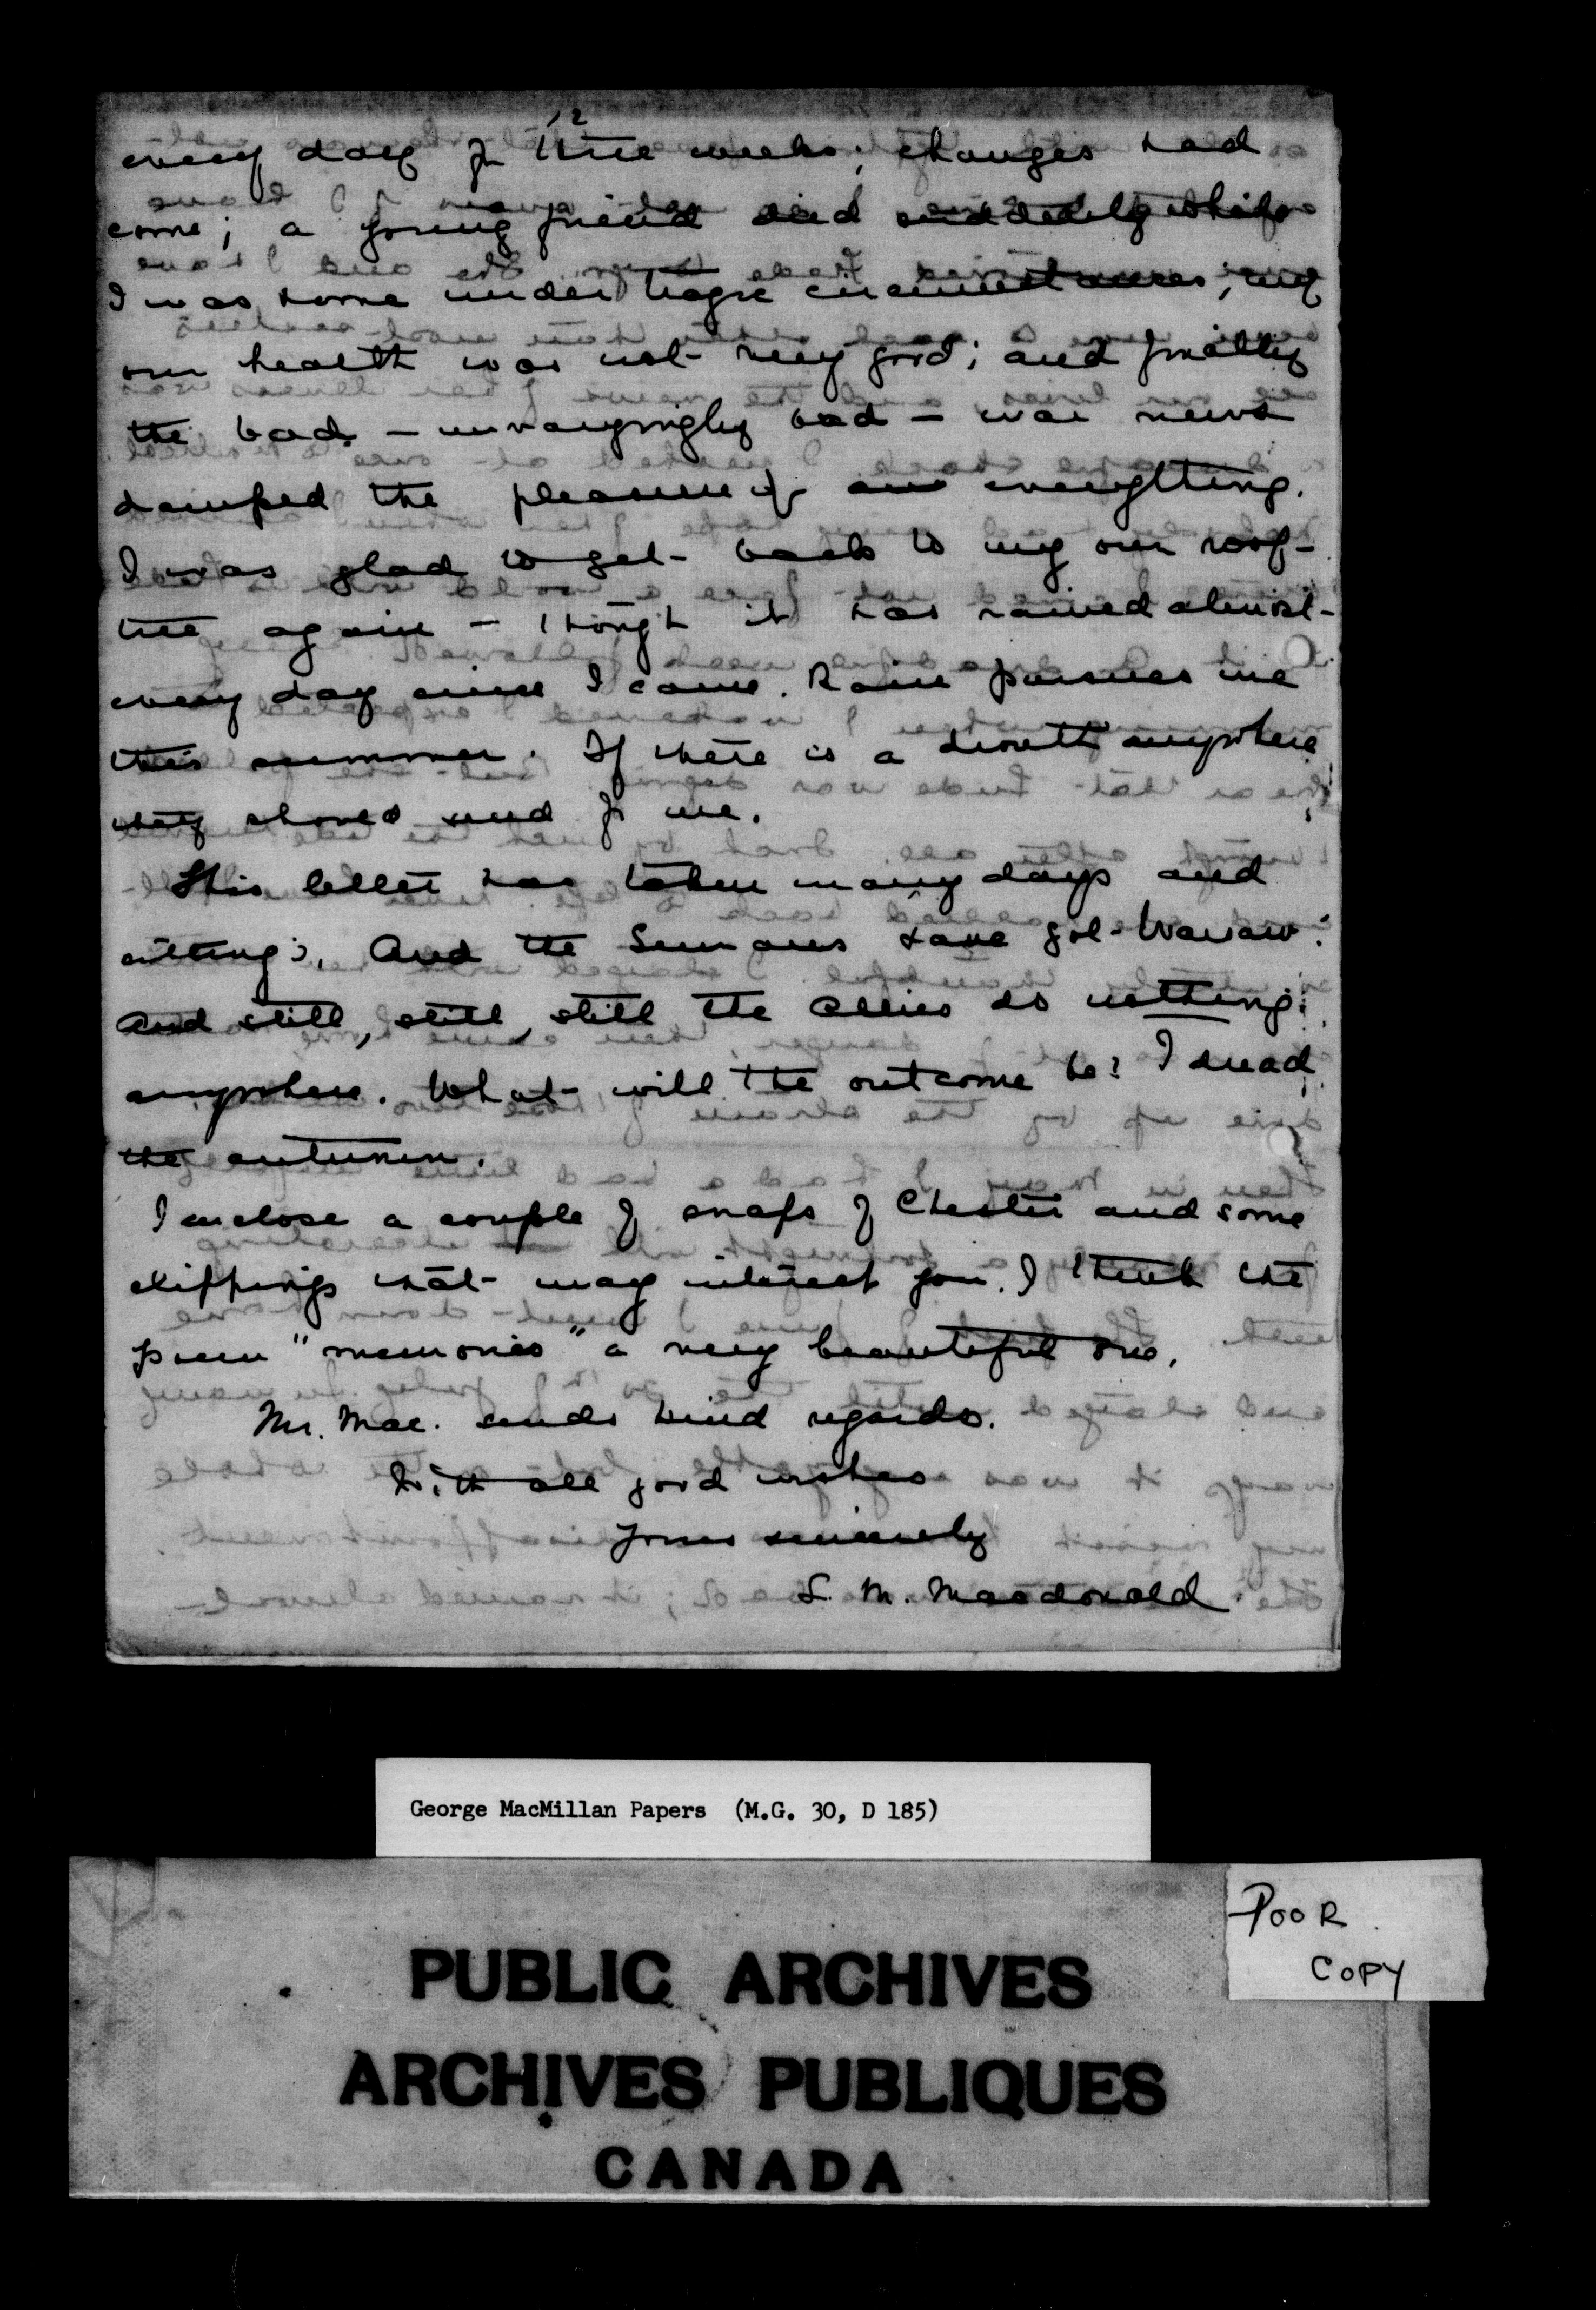 12
every day for three weeks; changes had
come; a young friend died suddenly while
I was home under tragic circumstances; my
own health was not very good; and finally
the bad – unvaryingly bad – war news
damped the pleasure of everything.
I was glad to get back to my own roof-
tree again – though it has rained almost
every day since I came. Rain pursues me
this summer. If there is a drouth anywhere
they should send for me.
This letter has taken many days and
sittings. And the Germans have got Warsaw!
And still, still, still the Allies do nothing
anywhere. What will the outcome be? I dread
the autumn.
I enclose a couple of snaps of Chester and some
clippings that may interest you. I think the
poem "memories" a very beautiful one.
Mr. Mac. sends kind regards.
With all good wishes
Yours sincerely
L. M. Macdonald
George MacMillan Papers (M.G. 30, D 185)
POOR
COPY
PUBLIC ARCHIVES
ARCHIVES PUBLIQUES
CANADA